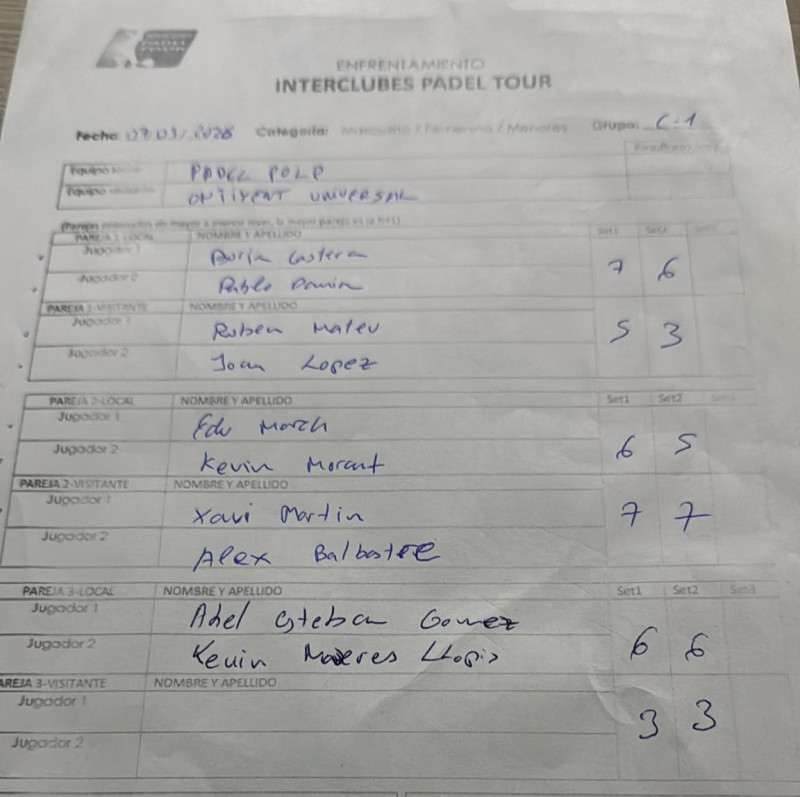 PADEL TOUR
ENFRENTAMIENTO
INTERCLUBES PADEL TOUR
Fecha: 07.03/2026 Categoría: Masculino / Femenino / Menores Grupo: C-1
Equipo PADEL POLO
Equipo ONTINYENT UNIVERSAL
PAREJA 1-LOCAL NOMBRE Y APELLIDO Set1 Set2
Jugador 1 Borja
Jugador 2 Pablo
7 6
PAREJA 1-VISITANTE NOMBRE Y APELLIDO
Jugador 1 Ruben Mateu
Jugador 2 Joan Lopez
5 3
PAREJA 2-LOCAL NOMBRE Y APELLIDO Set1 Set2 Set3
Jugador 1 Edu March
Jugador 2 Kevin Morant
6 5
PAREJA 2-VISITANTE NOMBRE Y APELLIDO
Jugador 1 Xavi Martin
Jugador 2 Alex Balbastre
7 7
PAREJA 3-LOCAL NOMBRE Y APELLIDO Set1 Set2 Set3
Jugador 1 Abel Esteban Gomez
Jugador 2 Kevin Moseres Llopis
6 6
AREJA 3-VISITANTE NOMBRE Y APELLIDO
Jugador 1
Jugador 2
3 3